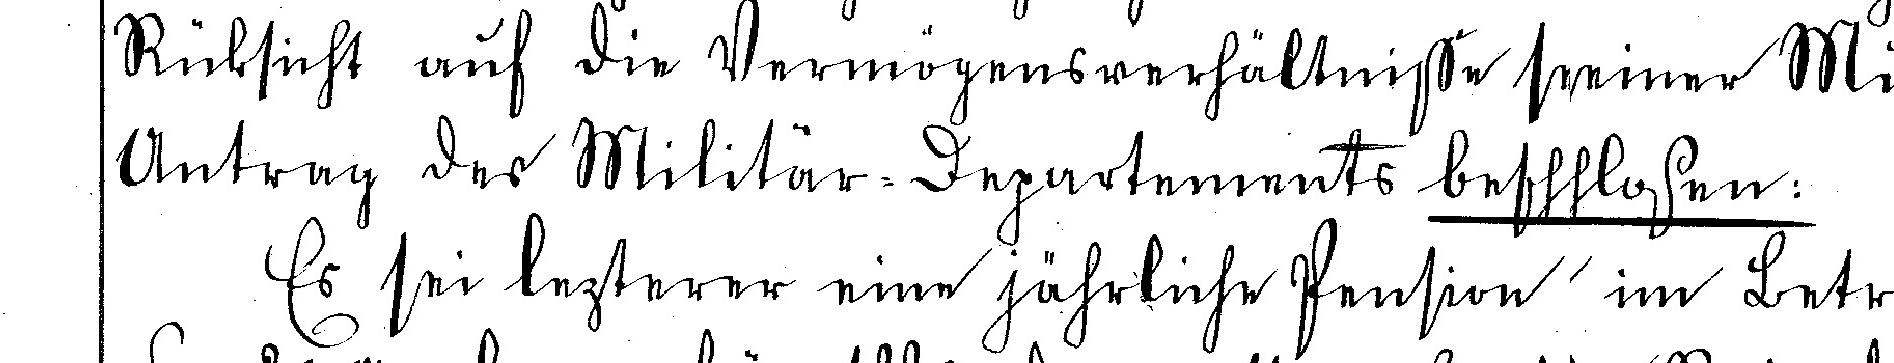 Rüksicht auf die Vermögensverhältnisse seiner
Antrag des Militär-Departements beschlossen:
Es sei lezterer eine jährliche Pension im